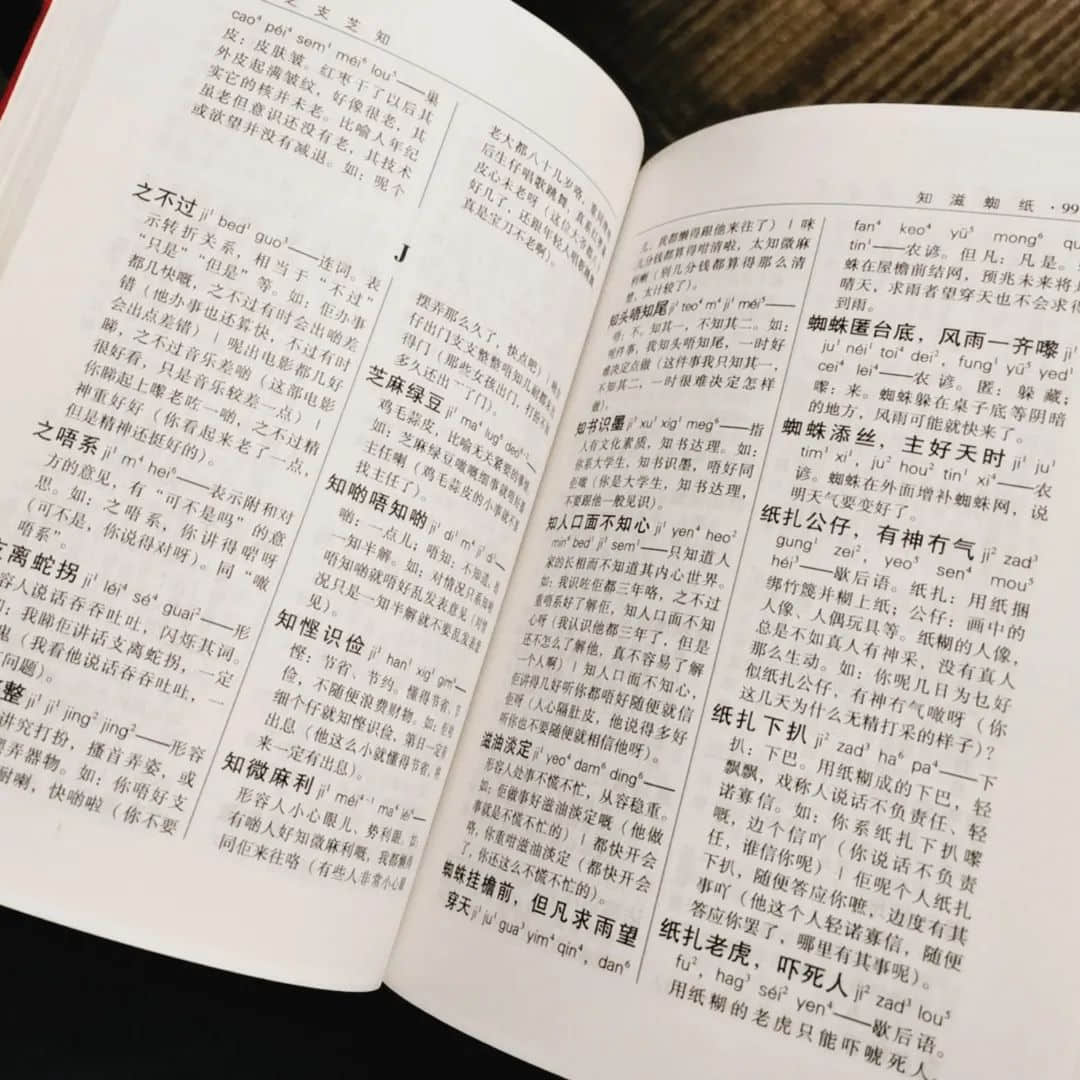 之 支 芝 知
cao⁴ péi⁴ sem¹ méi⁶ lou⁵——果
皮：皮肤皱。红枣干了以后其
外皮起满皱纹，好像很老，其
实它的核并未老。比喻人年纪
虽老但意识还没有老，其技术
或欲望并没有减退。如：呢个
老大都八十几岁咯，
后生仔唱歌跳舞，
皮心未老呀（这位大爷都八
好几了，还跟年轻人唱歌跳舞
真是宝刀不老啊）。
J
之不过 ji¹ bed¹ guo³——连词。表
示转折关系，相当于“不过”
“只是”“但是”等。如：佢办事
都几快嘅，之不过有时会出啲差
错（他办事也还算快，不过有时
会出点差错）｜呢出电影都几好
睇，之不过音乐差啲（这部电影
很好看，只是音乐较差一点）｜
你睇起上嚟老咗一啲，之不过精
神重好好（你看起来老了一点，
但是精神还挺好的）。
之唔系 ji¹ m⁴ hei⁶——表示附和对
方的意见，有“可不是吗”的意
思。如：之唔系，你讲得啱呀
（可不是，你说得对呀）。同“嗷
唔系”。
支离蛇拐 ji¹ léi⁴ sé⁴ guai²——形
容人说话吞吞吐吐，闪烁其词。
如：我睇佢讲话支离蛇拐，一定
鬼（我看他说话吞吞吐吐，一
问题）。
整 ji¹ ji¹ jing² jing²——形容
讲究打扮，搔首弄姿，或
弄器物。如：你唔好支
喇，快啲啦（你不要
摆弄那么久了，快点吧）｜
仔出门支支整整唔知几耐都未出
得门（那些女孩出门，打扮不知
多久还出不了门）。
芝麻绿豆 ji¹ ma⁴ lug⁶ deo⁶⁻²——
鸡毛蒜皮，比喻无关紧要的事情。
如：芝麻绿豆嗰啲细事就唔好
主任喇（鸡毛蒜皮的小事就不要
找主任了）。
知啲唔知啲 ji¹ di¹ m⁴ ji¹ di¹——
啲：一点儿；唔知：不知道。指
一知半解。如：对情况只系知啲
唔知啲就唔好乱发表意见（对情
况只是一知半解就不要乱发表意
见）。
知悭识俭 ji¹ han¹ xig¹ gim⁶——
悭：节省、节约。懂得节省、节
俭，不随便浪费财物。如：佢
细个仔就知悭识俭，第日一定有
出息（他这么小就懂得节省，将
来一定有出息）。
知微麻利 ji¹ méi⁴⁻¹ ma⁴ léi⁶——
形容人小心眼儿、势利眼。如：
有啲人好知微麻利嘅，我都懒得
同佢来往咯（有些人非常小心眼
知 滋 蜘 纸 ·99
儿，我都懒得跟他来往了）｜咪
几分钱都算得咁清啦，太知微麻
利喇（别几分钱都算得那么清
楚，太计较了）。
知头唔知尾 ji¹ teo⁴ m⁴ ji¹ méi⁵——
只知其一，不知其二。如：
呢件事，我知头唔知尾，一时好
难决定点做（这件事我只知其一，
不知其二，一时很难决定怎样
做）。
知书识墨 ji¹ xu¹ xig¹ meg⁶——指
人有文化素质，知书达理。如：
你系大学生，知书识墨，唔好同
佢哦（你是大学生，知书达理，
不要跟他一般见识）。
知人口面不知心 ji¹ yen⁴ heo²
min⁶ bed¹ ji¹ sem¹——只知道人
家的长相而不知道其内心世界。
如：我识咗佢都三年咯，之不过
重唔系好了解佢，知人口面不知
心呀（我认识他都三年了，但是
还不怎么了解他，真不容易了解
一个人啊）｜知人口面不知心，
佢讲得几好听你都唔好随便就信
佢呀（人心隔肚皮，他说得多好
听你也不要随便就相信他呀）。
滋油淡定 ji¹ yeo⁴ dam⁶ ding⁶——
形容处事不慌不忙，从容稳重。
如：佢做事好滋油淡定嘅（他做
事就是不慌不忙的）｜都快开会
咯，你重咁滋油淡定（都快开会
了，你还这么不慌不忙的）。
蜘蛛挂檐前，但凡求雨望
穿天 ji¹ ju¹ gua³ yim⁴ qin⁴，dan⁶
fan⁴ keo⁴ yü⁵ mong⁶
tin¹——农谚。但凡：凡是。
蛛在屋檐前结网，预兆未来将是
晴天，求雨者望穿天也不会求得
到雨。
蜘蛛匿台底，风雨一齐嚟 ji¹
ju¹ néi¹ toi⁴ dei²，fung¹ yü⁵ yed¹
cei⁴ lei⁴——农谚。匿：躲藏；
嚟：来。蜘蛛躲在桌子底等阴暗
的地方，风雨可能就快来了。
蜘蛛添丝，主好天时 ji¹ ju¹
tim¹ xi¹，ju² hou² tin¹ xi⁴——农
谚。蜘蛛在外面增补蜘蛛网，说
明天气要变好了。
纸扎公仔，有神冇气 ji² zad³
gung¹ zei²，yeo⁵ sen⁴ mou⁵
héi³——歇后语。纸扎：用纸捆
绑竹篾并糊上纸；公仔：画中的
人像、人偶玩具等。纸糊的人像，
总是不如真人有神采，没有真人
那么生动。如：你呢几日为乜好
似纸扎公仔，有神冇气噉呀（你
这几天为什么无精打采的样子）？
纸扎下扒 ji² zad³ ha⁶ pa⁴——下
扒：下巴。用纸糊成的下巴，轻
飘飘，戏称人说话不负责任、轻
诺寡信。如：你系纸扎下扒嚟
嘅，边个信吖（你说话不负责
任，谁信你呢）｜佢呢个人纸扎
下扒，随便答应你嘅，边度有其
事吖（他这个人轻诺寡信，随便
答应你罢了，哪里有其事呢）。
纸扎老虎，吓死人 ji² zad³ lou⁵
fu²，hag³ séi² yen⁴——歇后语。
用纸糊的老虎只能吓唬死人，